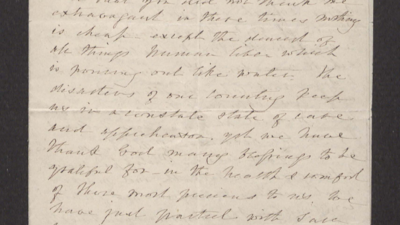 you did not think me
extravagant in these times nothing
is cheap except the dearest of
all things human labor which
is pouring out like water. The
disasters of our country keep
us in a constant state of care
and apprehension yet we have
thank God many blessings to be
grateful for in the health & comfort
of those most precious to us. We
have just parted with